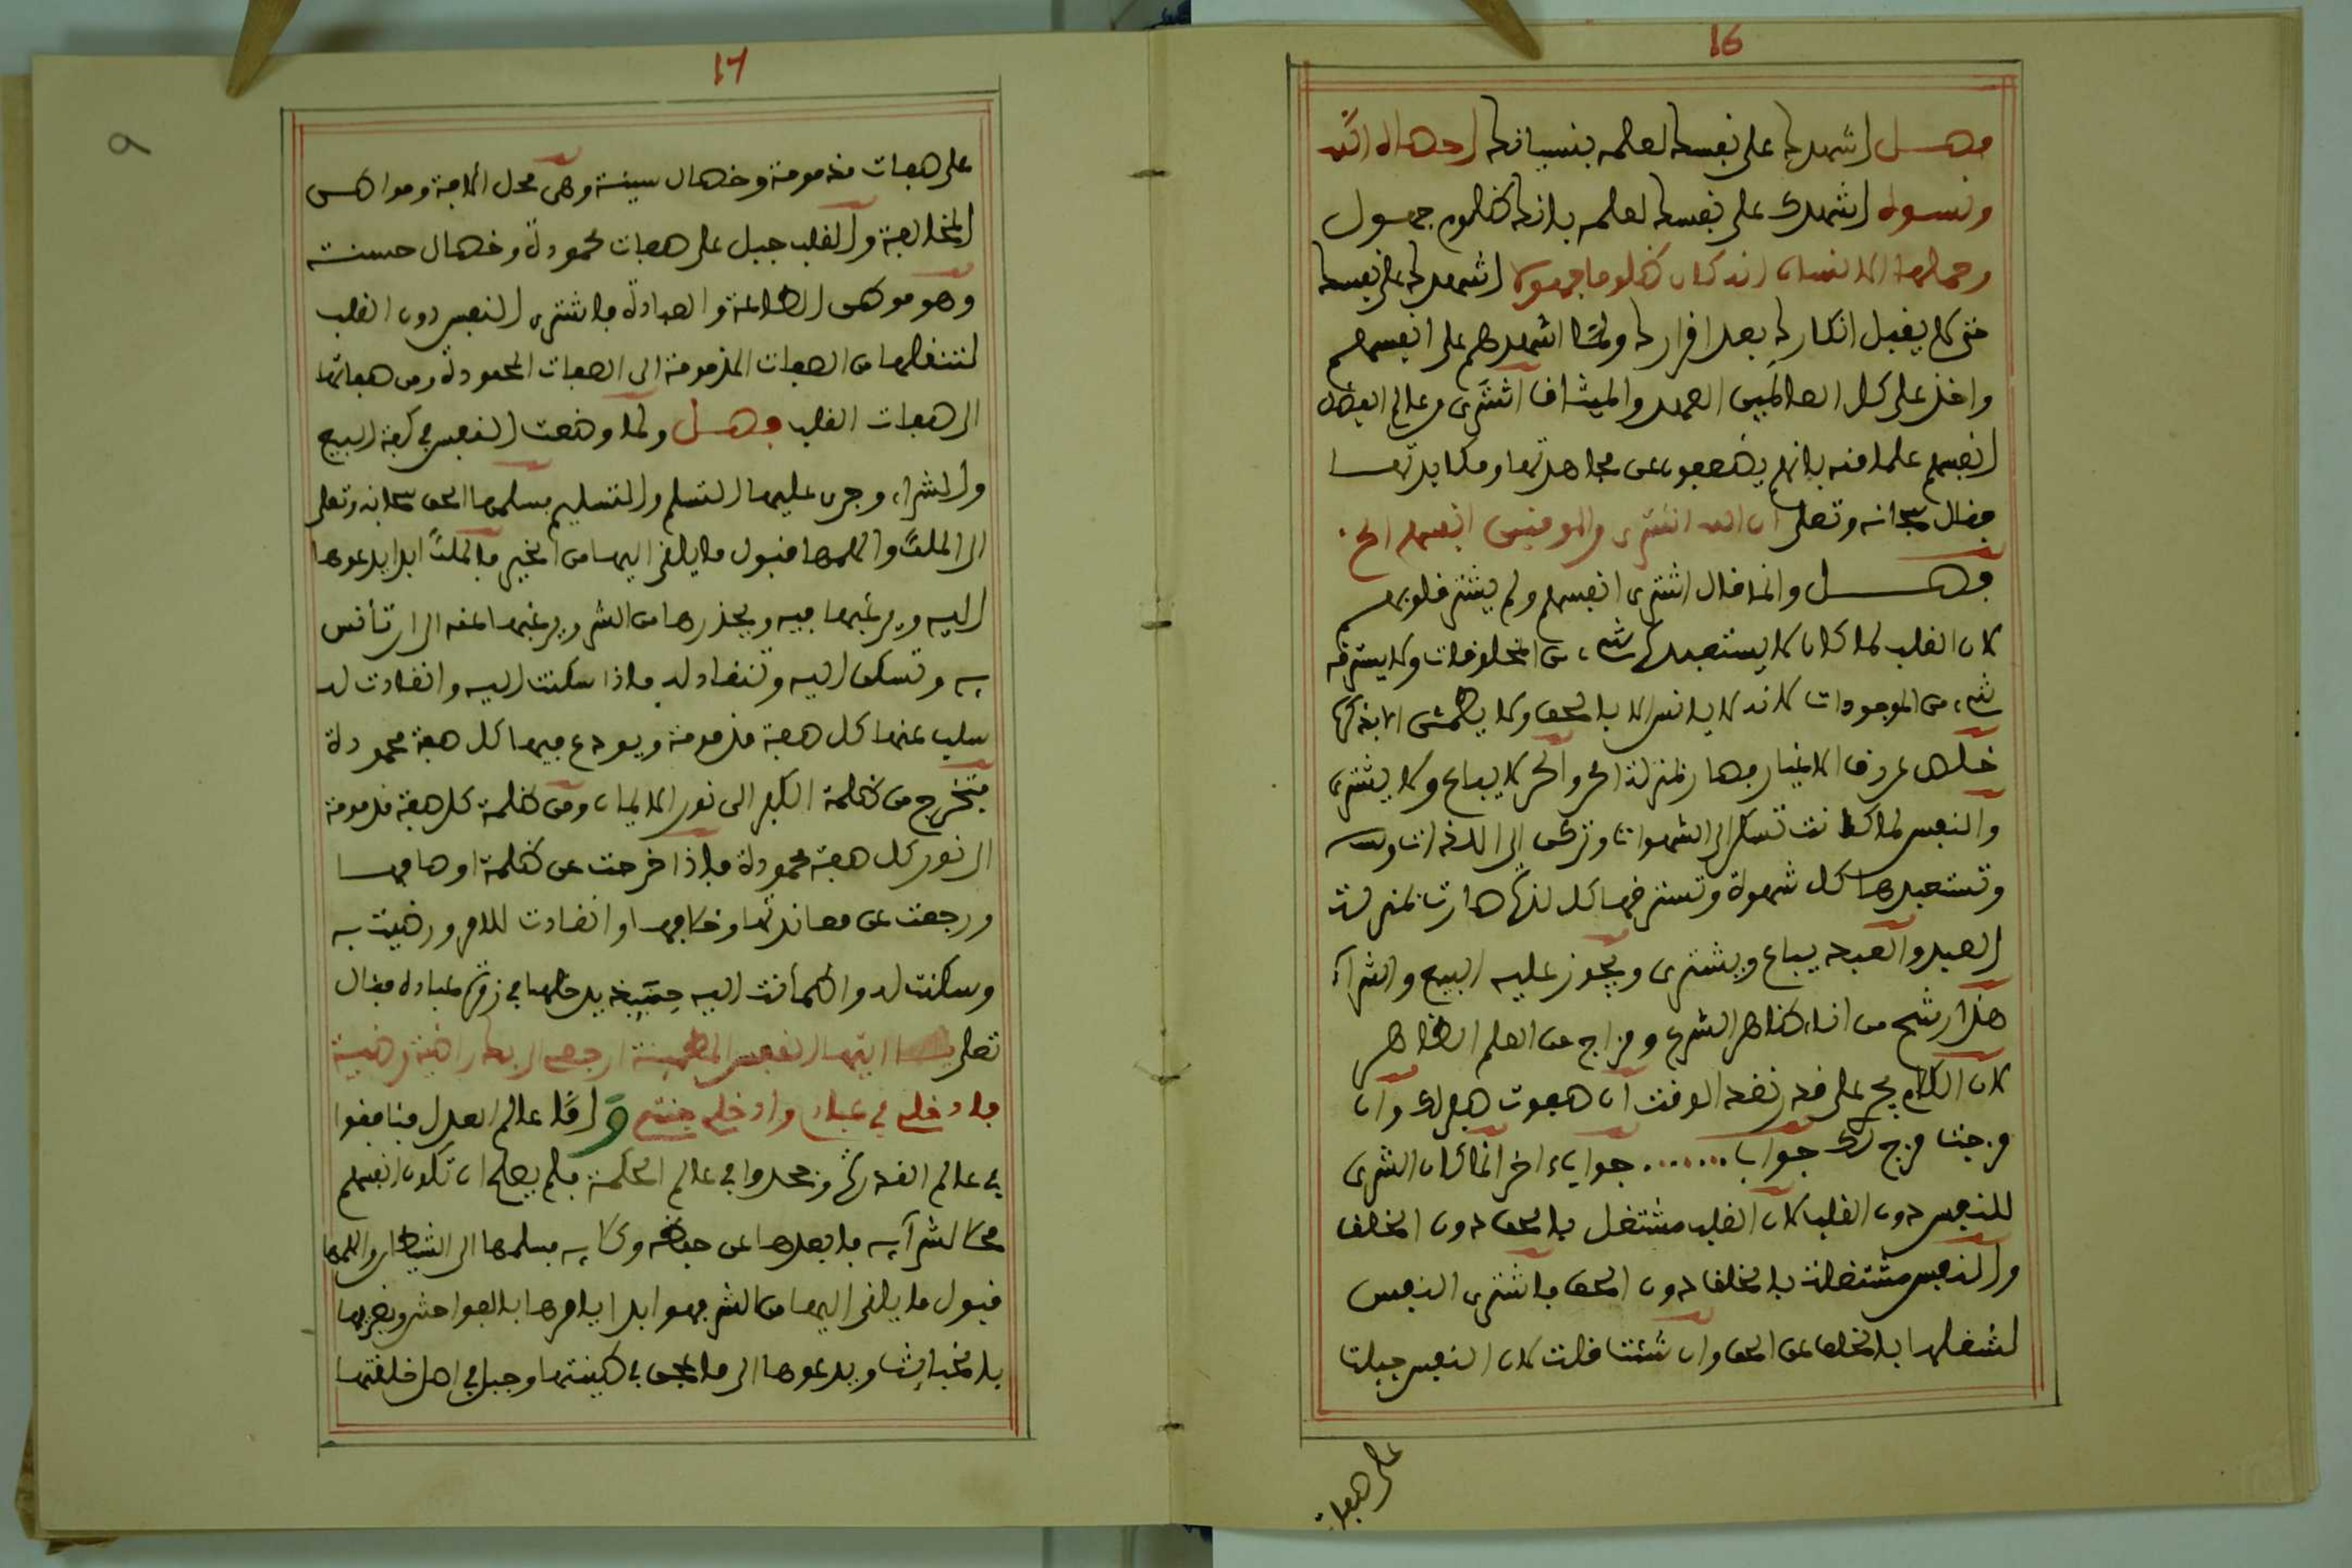 16
فصل اشهدك على نفسك لعلمه بنسيانك احصاه الله
ونسوه اشهدك على نفسك لعلمه بانك ظلوم جهول
وحملها الانسان انه كان ظلوما جهولا اشهدك على نفسك
حتى لا يقبل انكارك بعد اقرارك ولما اشهدهم على انفسهم
واخذ على كل العالمين العهد والميثاق اشترى في عالم الفضل
انفسهم علما منه بانهم يضعفون عن مجاهدتها ومكابدتها
فقال سبحانه وتعلى ان الله اشترى من المومنين انفسهم الخ
فصل وانما قال اشترى انفسهم ولم يشتر قلوبهم
لان القلب لما كان لا يستعبده شيء من المخلوقات ولا يسترقه
شيء من الموجودات لانه لا يانس الا بالحق ولا يطمئن الا بذكره
خلص عن رق الاغيار فصار بمنزلة الحر والحر لا يباع ولا يشترى
والنفس لما كانت تسكن الى الشهوات وتركن الى اللذات
وتستعبدها كل شهوة وتسترقها كل لذة صارت بمنزلة
العبد والعبد يباع ويشترى ويجوز عليه البيع والشراء
هذا رشح من اناء ظاهر الشرع ومزاج من العلم الظاهر
لان الكلام يجري على قدر نقد الوقت ان صفوت صفي لك وان
مزجت مزج لك جواب ........ جواب اخر انما كان الشرى
للنفس دون القلب لان القلب مشتغل بالحق دون الخلق
والنفس مشتغلة بالخلق دون الحق فاشترى النفس
لشغلها بالخلق عن الحق وان شئت قلت لان النفس جبلت
على صفات
17
٩
على صفات مذمومة وخصال سيئة وهي محل الافة وموطن
المخالفة والقلب جبل على صفات محمودة وخصال حسنة
وهو موطن الطاعة والعبادة فاشترى النفس دون القلب
لتنقلها من الصفات المذمومة الى الصفات المحمودة ومن صفاتها
الى صفات القلب فصل ولما وضعت النفس في كفة البيع
والشراء وجرى عليها التسلم والتسليم فسلمها الحق سبحانه وتعلى
الى الملك والهمها قبول ما يلقي اليها من الخير فالملك ابدا يدعوها
اليه ويرغبها فيه ويحذرها من الشر ويرغبها عنه الى ان تانس
به وتسكن اليه وتنقاد له فاذا سكنت اليه وانقادت له
سلب عنها كل صفة مذمومة ويودع فيها كل صفة محمودة
فتخرج من ظلمة الكفر الى نور الايمان ومن ظلمة كل صفة مذمومة
الى نور كل صفة محمودة فاذا خرجت عن ظلمة اوصافها
ورجعت عن معاندتها وخلافها وانقادت للامر ورضيت به
وسكنت له واطمانت اليه حينئذ يدخلها في زمرة عباده فقال
تعلى يا ايتها النفس المطمينة ارجعي الى ربك راضية مرضية
فادخلي في عبادي وادخلي جنتي واما عالم العدل فنافقوا
في عالم القدرة وجحدوا في عالم الحكمة فلم يصلح ان تكون انفسهم
محلا لشرائه فابعدها عن حفظه وكلايه فسلمها الى الشيطان والهمها
قبول ما يلقي اليها من الشر فهو ابدا يامرها بالفواحش ويغريها
بالخبائث ويدعوها الى ما عجن في طينتها وجبل في اصل خلقتها